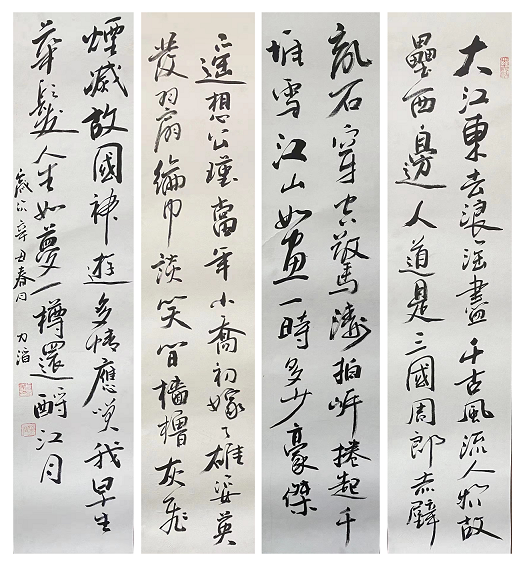 大江東去浪淘盡千古風流人物故
壘西邊人道是三國周郎赤壁
亂石穿空驚濤拍岸捲起千
堆雪江山如畫一時多少豪傑
遥想公瑾當年小喬初嫁了雄姿英
發羽扇綸巾談笑間檣櫓灰飛
煙滅故國神遊多情應笑我早生
華髮人生如夢一樽還酹江月
歲次辛丑春月